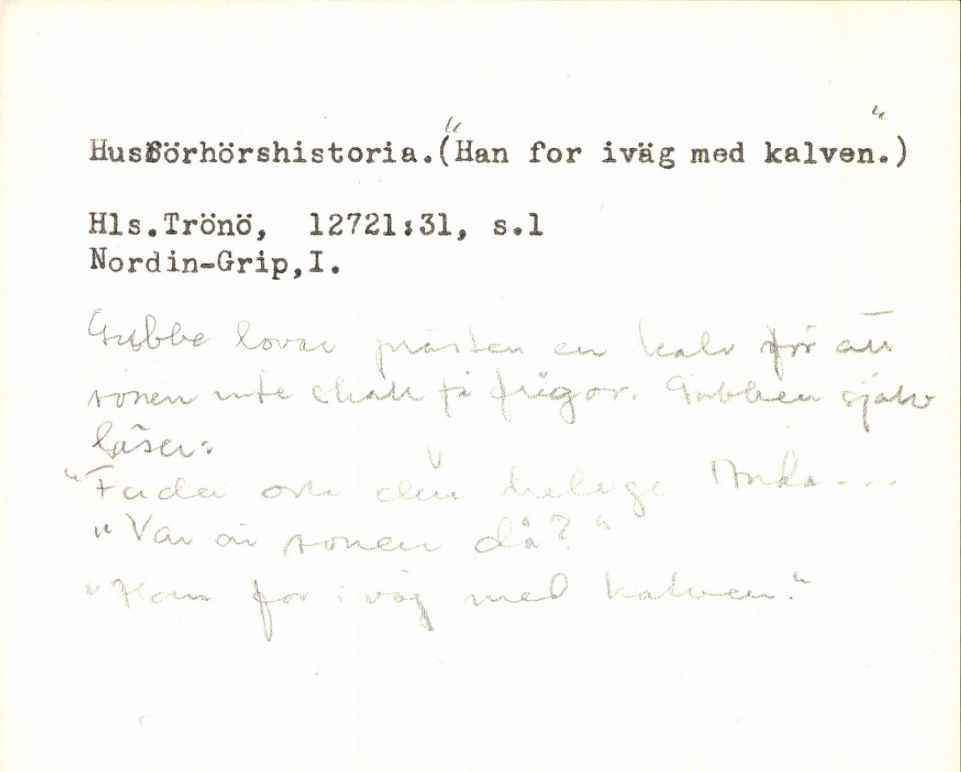 Husförhörshistoria.("Han for iväg med kalven.")
Hls.Trönö, 12721:31, s.1
Nordin-Grip,I.
Gubbe lovar prästen en kalv för att
sonen inte skall få frågor. Gubben själv
läser:
"Fader och den helige Anda...
"Var är sonen då?"
"Han for i väg med kalven."